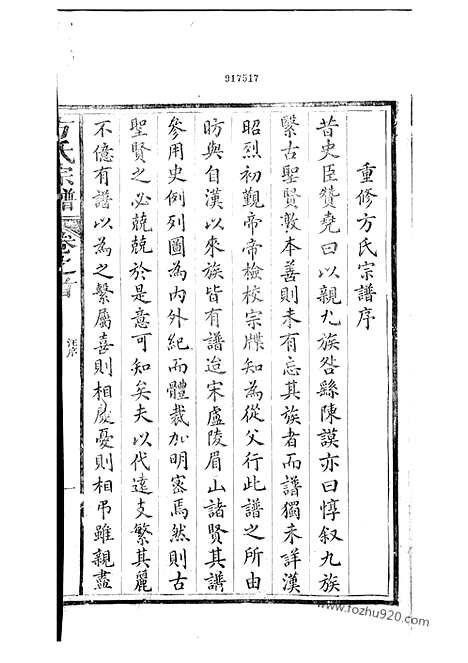 917517
重修方氏宗譜序
昔史臣贊堯曰以親九族咎繇陳謨亦曰惇叙九族
繄古聖賢敦本善則未有忘其族者而譜獨未詳漢
昭烈初觐帝帝檢校宗牒知為從父行此譜之所由
昉與自漢以來族皆有譜迨宋盧陵眉山諸賢其譜
參用史例列圖為內外紀而體裁加明密焉然則古
聖賢之必兢兢於是意可知矣夫以代遠支繁其麗
不億有譜以為之繫屬喜則相慶憂則相弔雖親盡
方氏宗譜 卷之首 汪序 一
www.tozhu920.com